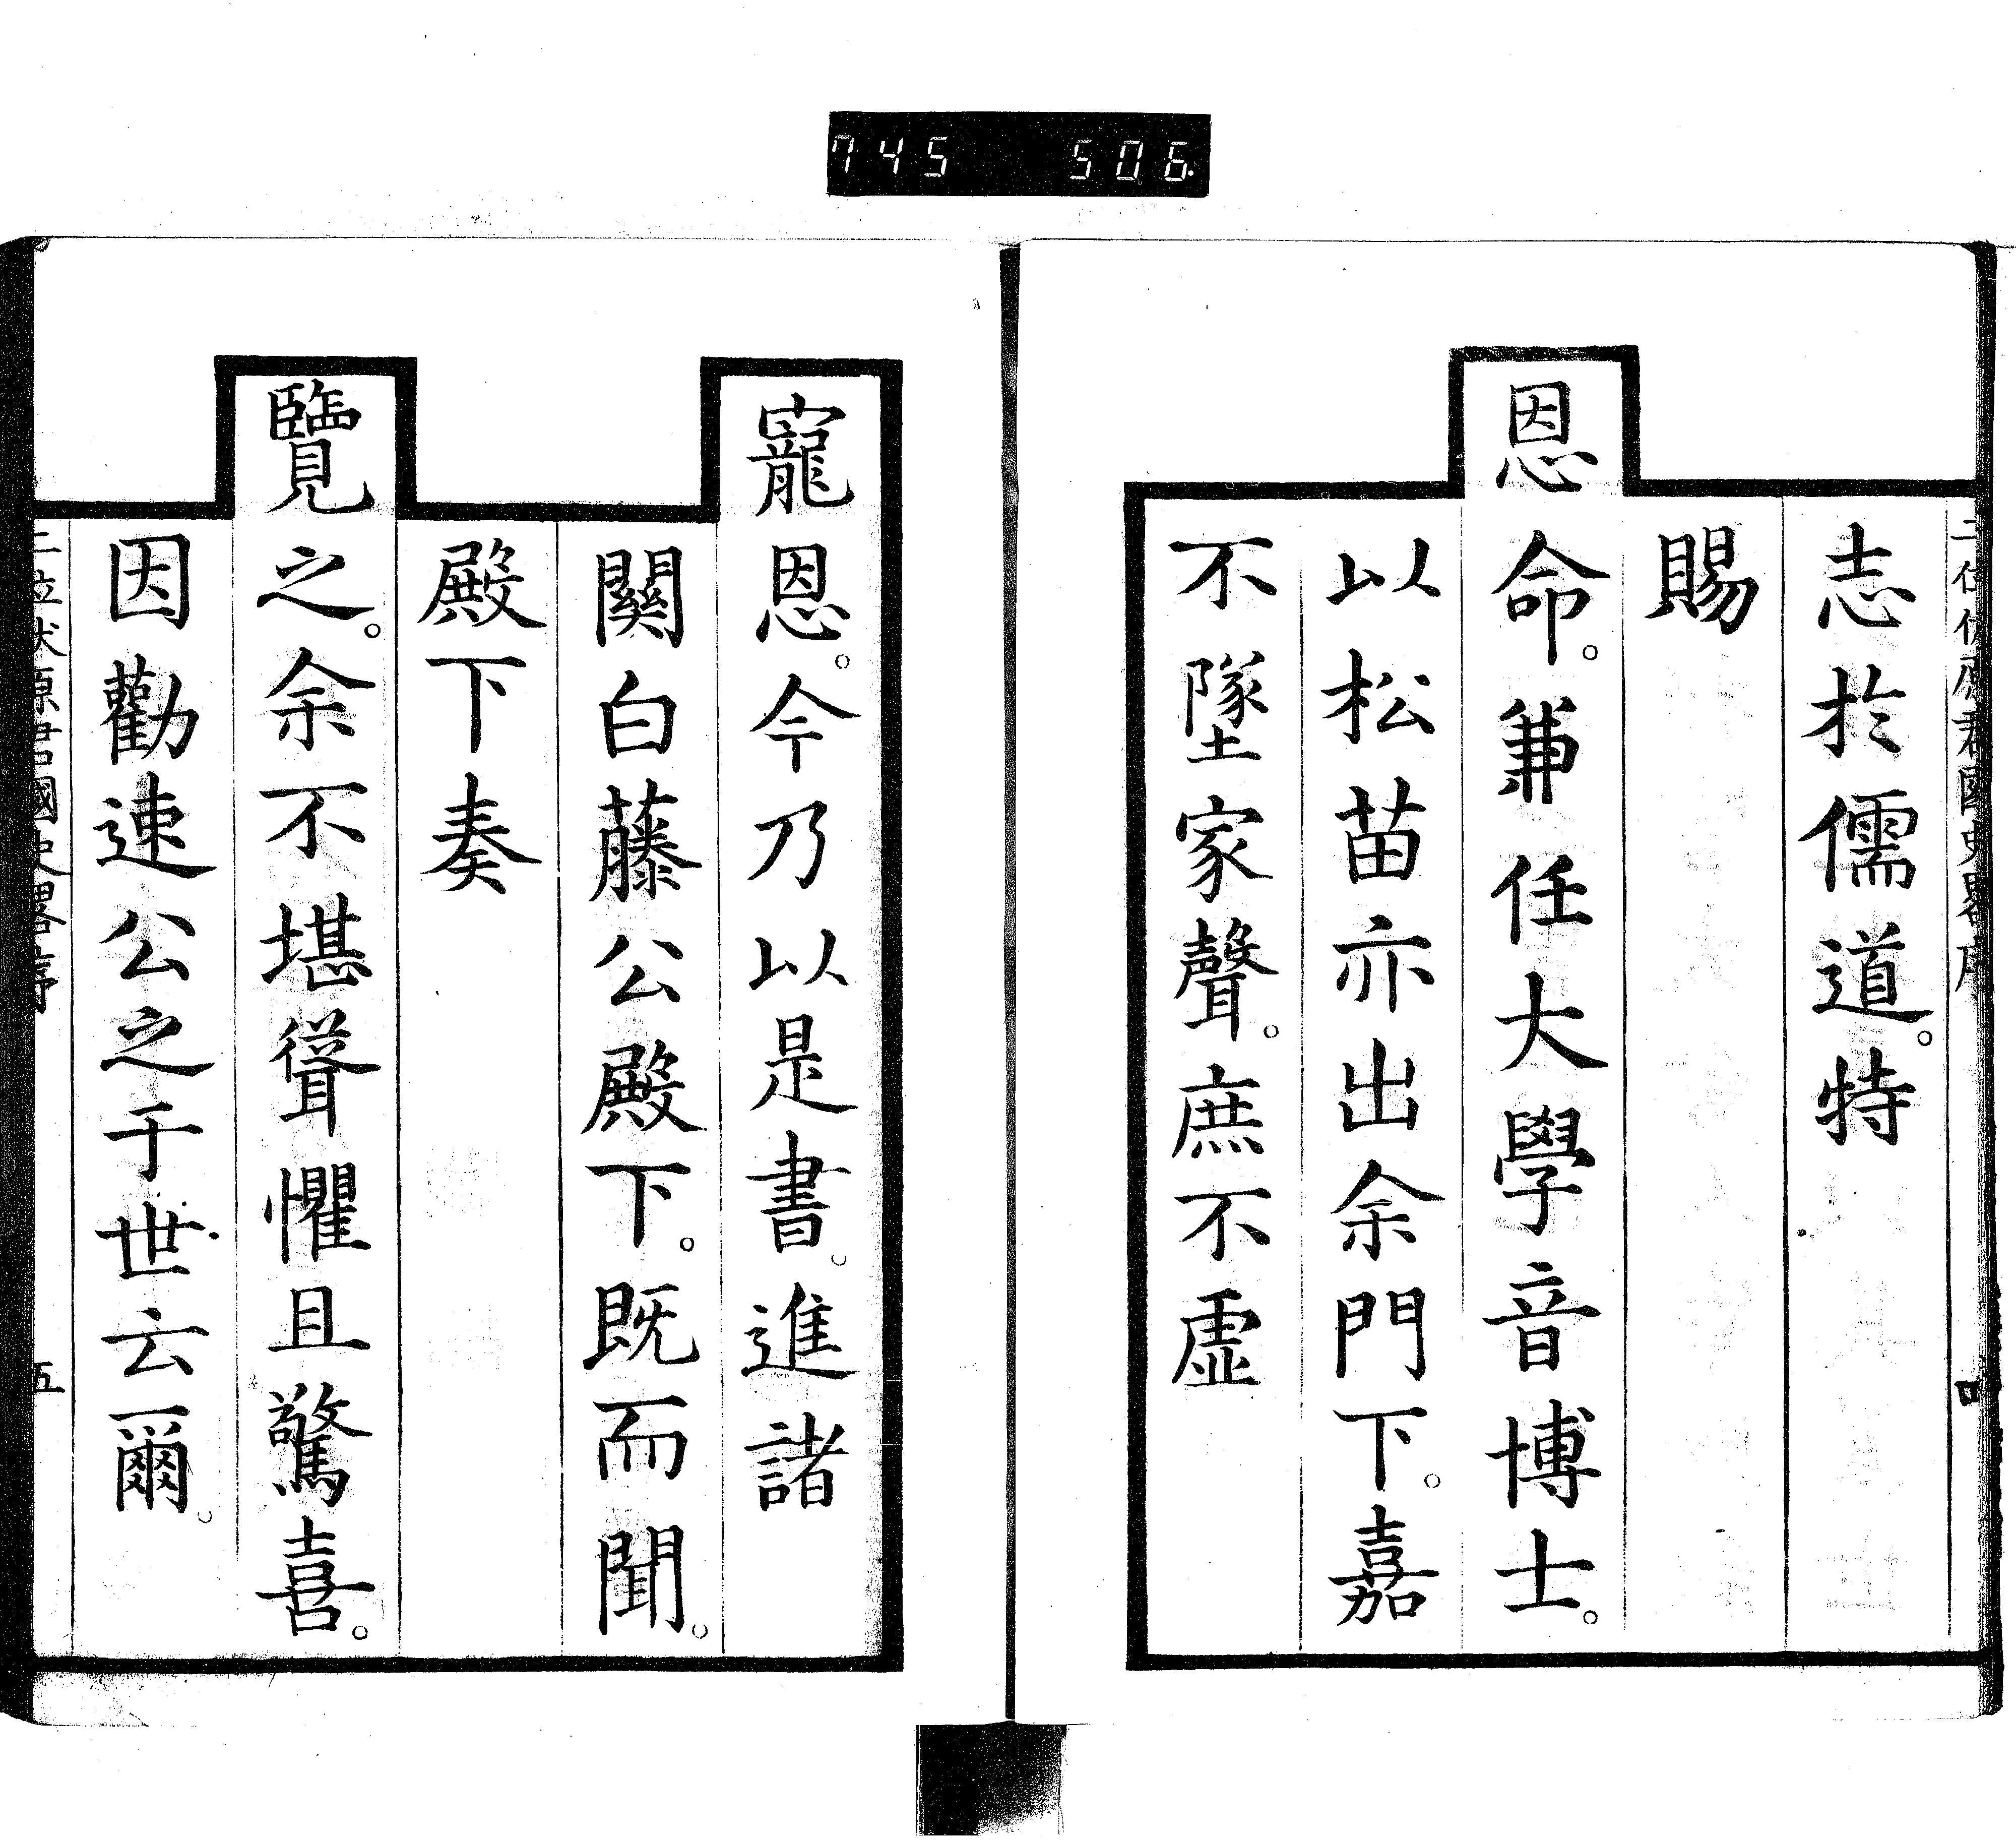 745 506
二位伏原君國史畧序
四
志於儒道。特
賜
恩命。兼任大學音博士。
以松苗亦出余門下。嘉
不墜家聲。庶不虛
寵恩。今乃以是書。進諸
關白藤公殿下。既而聞。
殿下奏
覽之。余不堪聳懼且驚喜。
因勸速公之于世云爾。
二位伏原君國史畧序
五